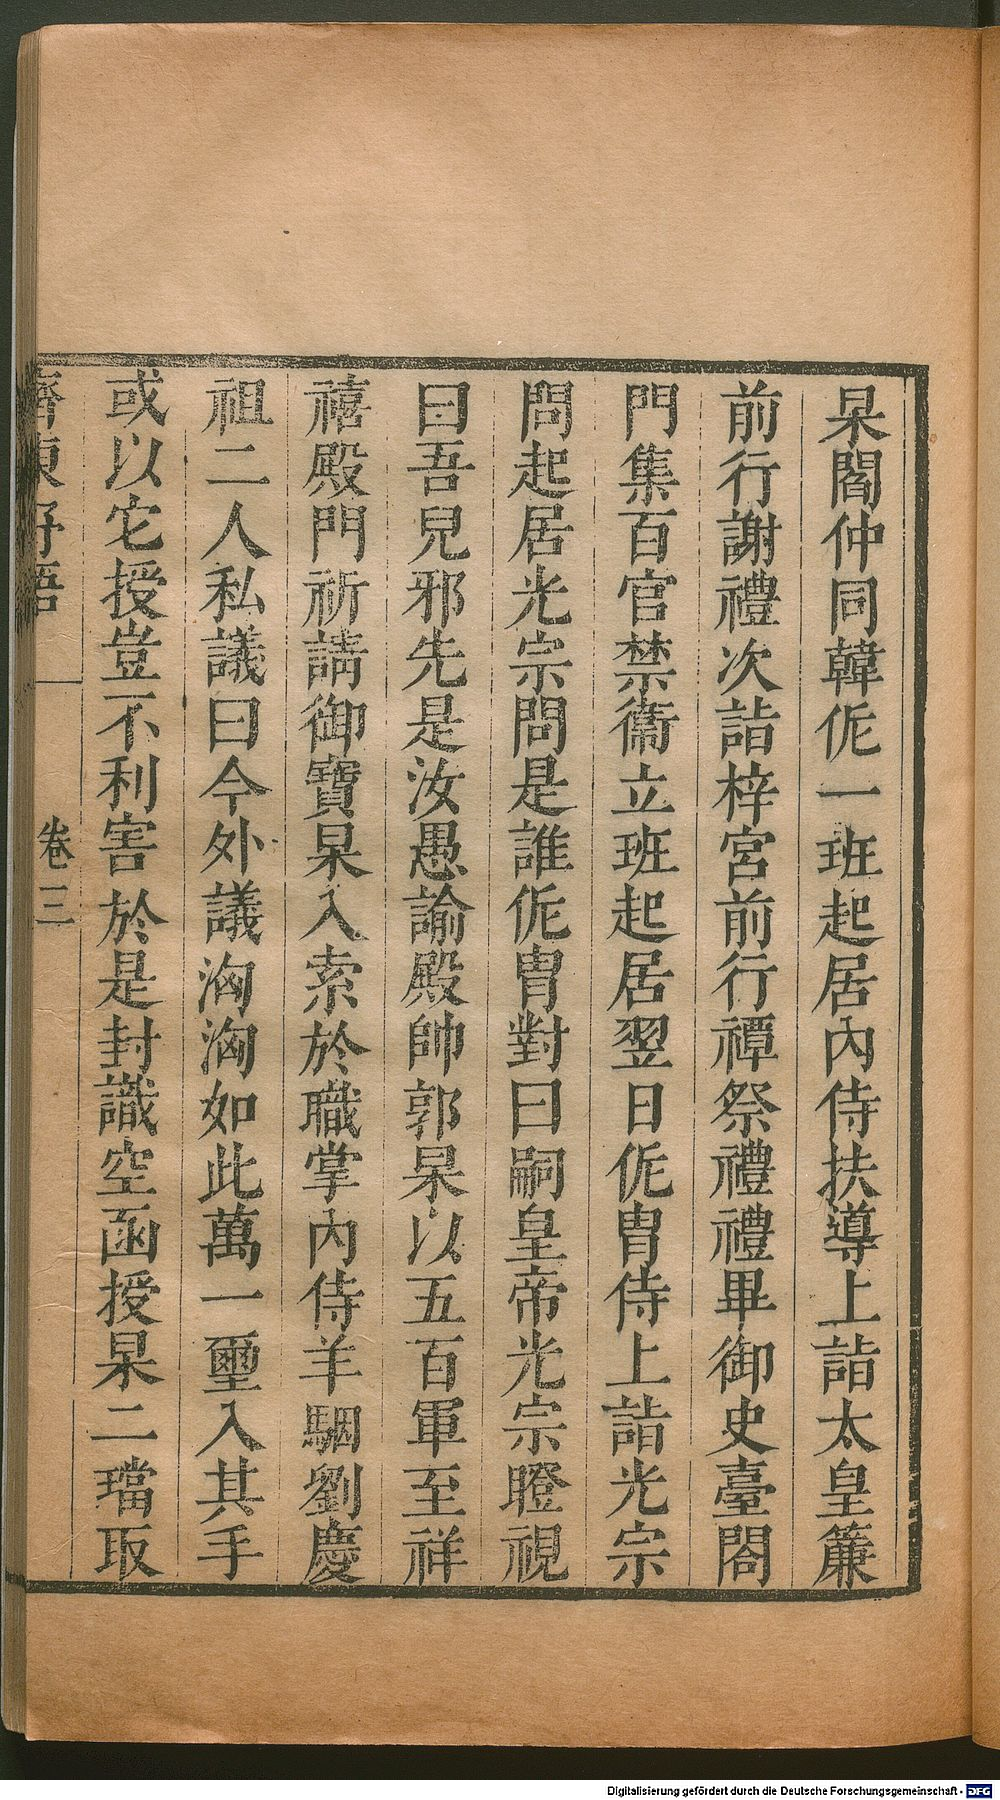 杲閻仲同韓侂一班起居內侍扶導上詣太皇簾
前行謝禮次詣梓宮前行禫祭禮禮畢御史臺閤
門集百官禁衞立班起居翌日侂胄侍上詣光宗
問起居光宗問是誰侂胄對曰嗣皇帝光宗瞪視
曰吾兒邪先是汝愚諭殿帥郭杲以五百軍至祥
禧殿門祈請御寶杲入索於職掌內侍羊駰劉慶
祖二人私議曰今外議洶洶如此萬一璽入其手
或以它授豈不利害於是封識空函授杲二璫取
齊東野語 卷三
Digitalisierung gefördert durch die Deutsche Forschungsgemeinschaft - DFG